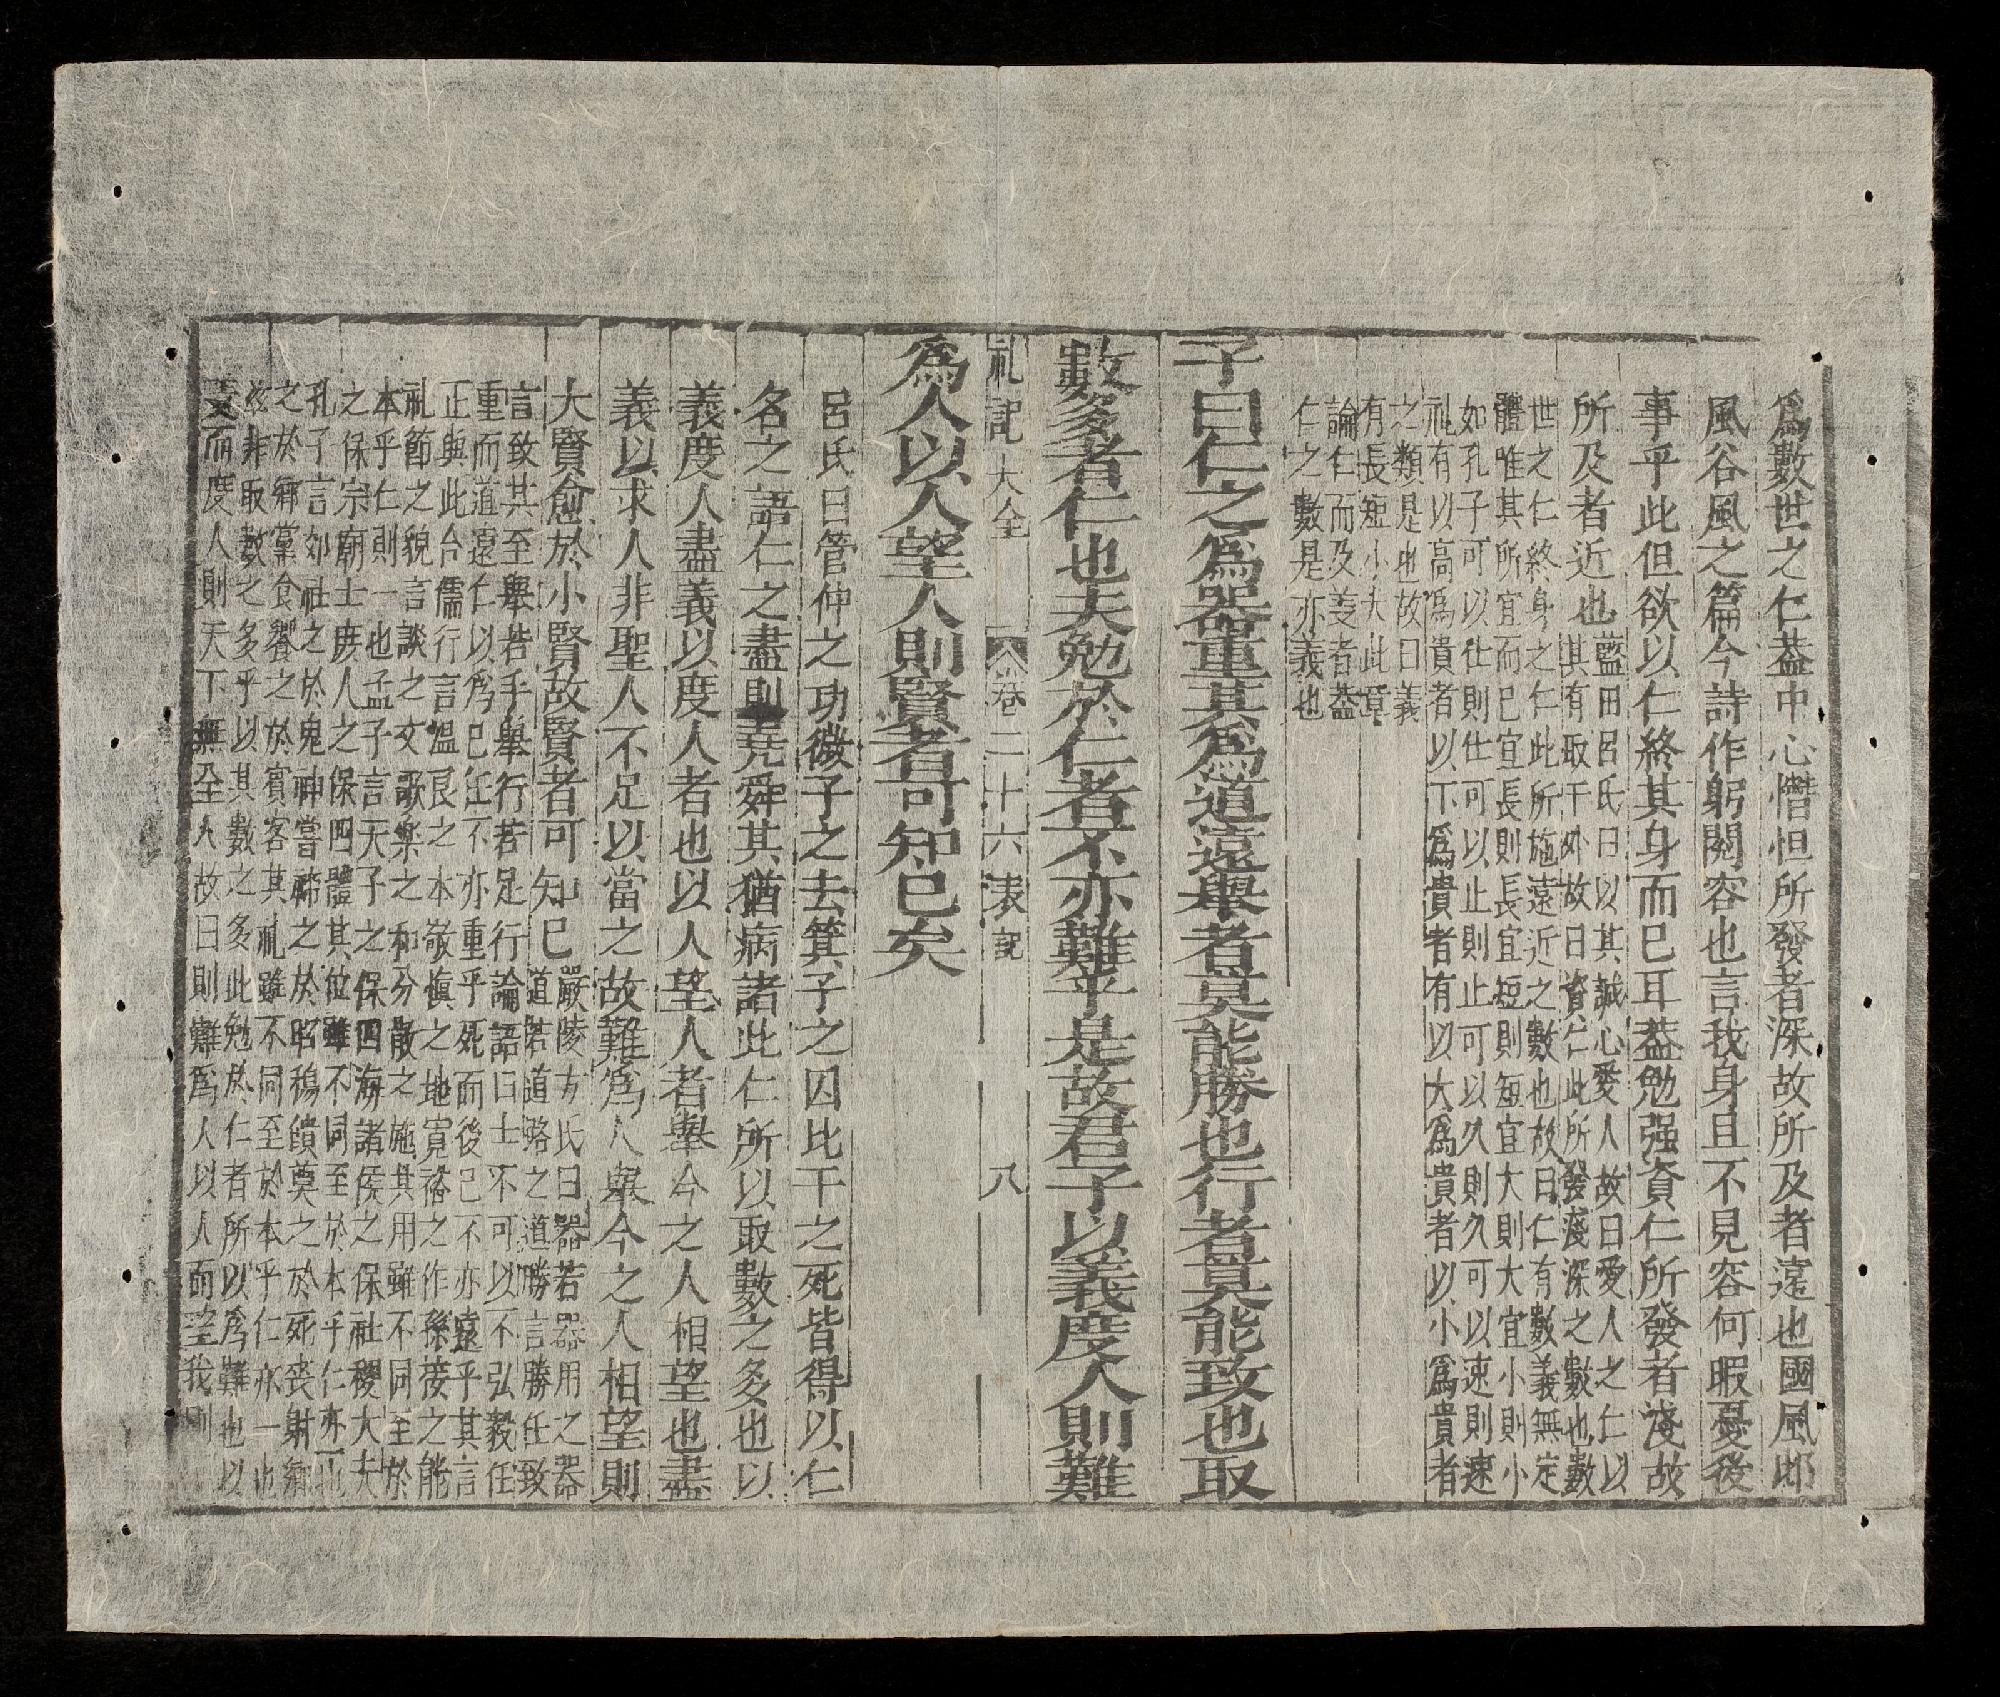 爲數世之仁葢中心憯怛所發者深故所及者遠也國風邶
風谷風之篇今詩作躬閱容也言我身且不見容何暇憂後
事乎此但欲以仁終其身而已耳葢勉强資仁所發者淺故
所及者近也
藍田呂氏曰以其誠心愛人故曰愛人之仁以
其有取于外故曰資仁此所發淺深之數也數
世之仁終身之仁此所施遠近之數也故曰仁有數義無定
體唯其所宜而已宜長則長宜短則短宜大則大宜小則小
如孔子可以仕則仕可以止則止可以久則久可以速則速
礼有以高爲貴者以下爲貴者有以大爲貴者以小爲貴者
之類是也故曰義
有長短小大此章
論仁而及義者葢
仁之數是亦義也
子曰仁之爲器重其爲道遠舉者莫能勝也行者莫能致也取
數多者仁也夫勉於仁者不亦難乎是故君子以義度人則難
礼記大全 卷二十六表記 八
爲人以人望人則賢者可知已矣
呂氏曰管仲之功微子之去箕子之囚比干之死皆得以仁
名之語仁之盡則堯舜其猶病諸此仁所以取數之多也以
義度人盡義以度人者也以人望人者舉今之人相望也盡
義以求人非聖人不足以當之故難爲人舉今之人相望則
大賢愈於小賢故賢者可知已
嚴陵方氏曰器若器用之器
道若道路之道勝言勝任致
言致其至舉若手舉行若足行論語曰士不可以不弘毅任
重而道遠仁以爲己任不亦重乎死而後已不亦遠乎其言
正與此合儒行言溫良之本敬愼之地寬裕之作孫接之能
礼節之貌言談之文歌樂之和分散之施其用雖不同至於
本乎仁則一也孟子言天子之保四海諸侯之保社稷大夫
之保宗廟士庶人之保四體其位雖不同至於本乎仁亦一也
孔子言郊社之於鬼神嘗禘之於昭穆饋奠之於死喪射鄉
之於鄉黨食饗之於賓客其礼雖不同至於本乎仁亦一也
玆非取數之多乎以其數之多此勉於仁者所以爲難也以
義而度人則天下無全人故曰則難爲人以人而望我則